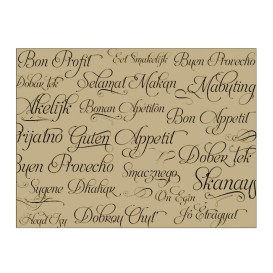 Bon Profit Eet Smakelijk Buen Provecho
Dober Tek Selamat Makan Mabuting
Akelijk Bonan Apetiton
Bon Appetit
Prijatno Guten Appetit
Dober Tek
Buen Provecho Smacznego Skanaus
Sugeno Dhahar On Egin
Dobrou Chut Jó Étvágyat